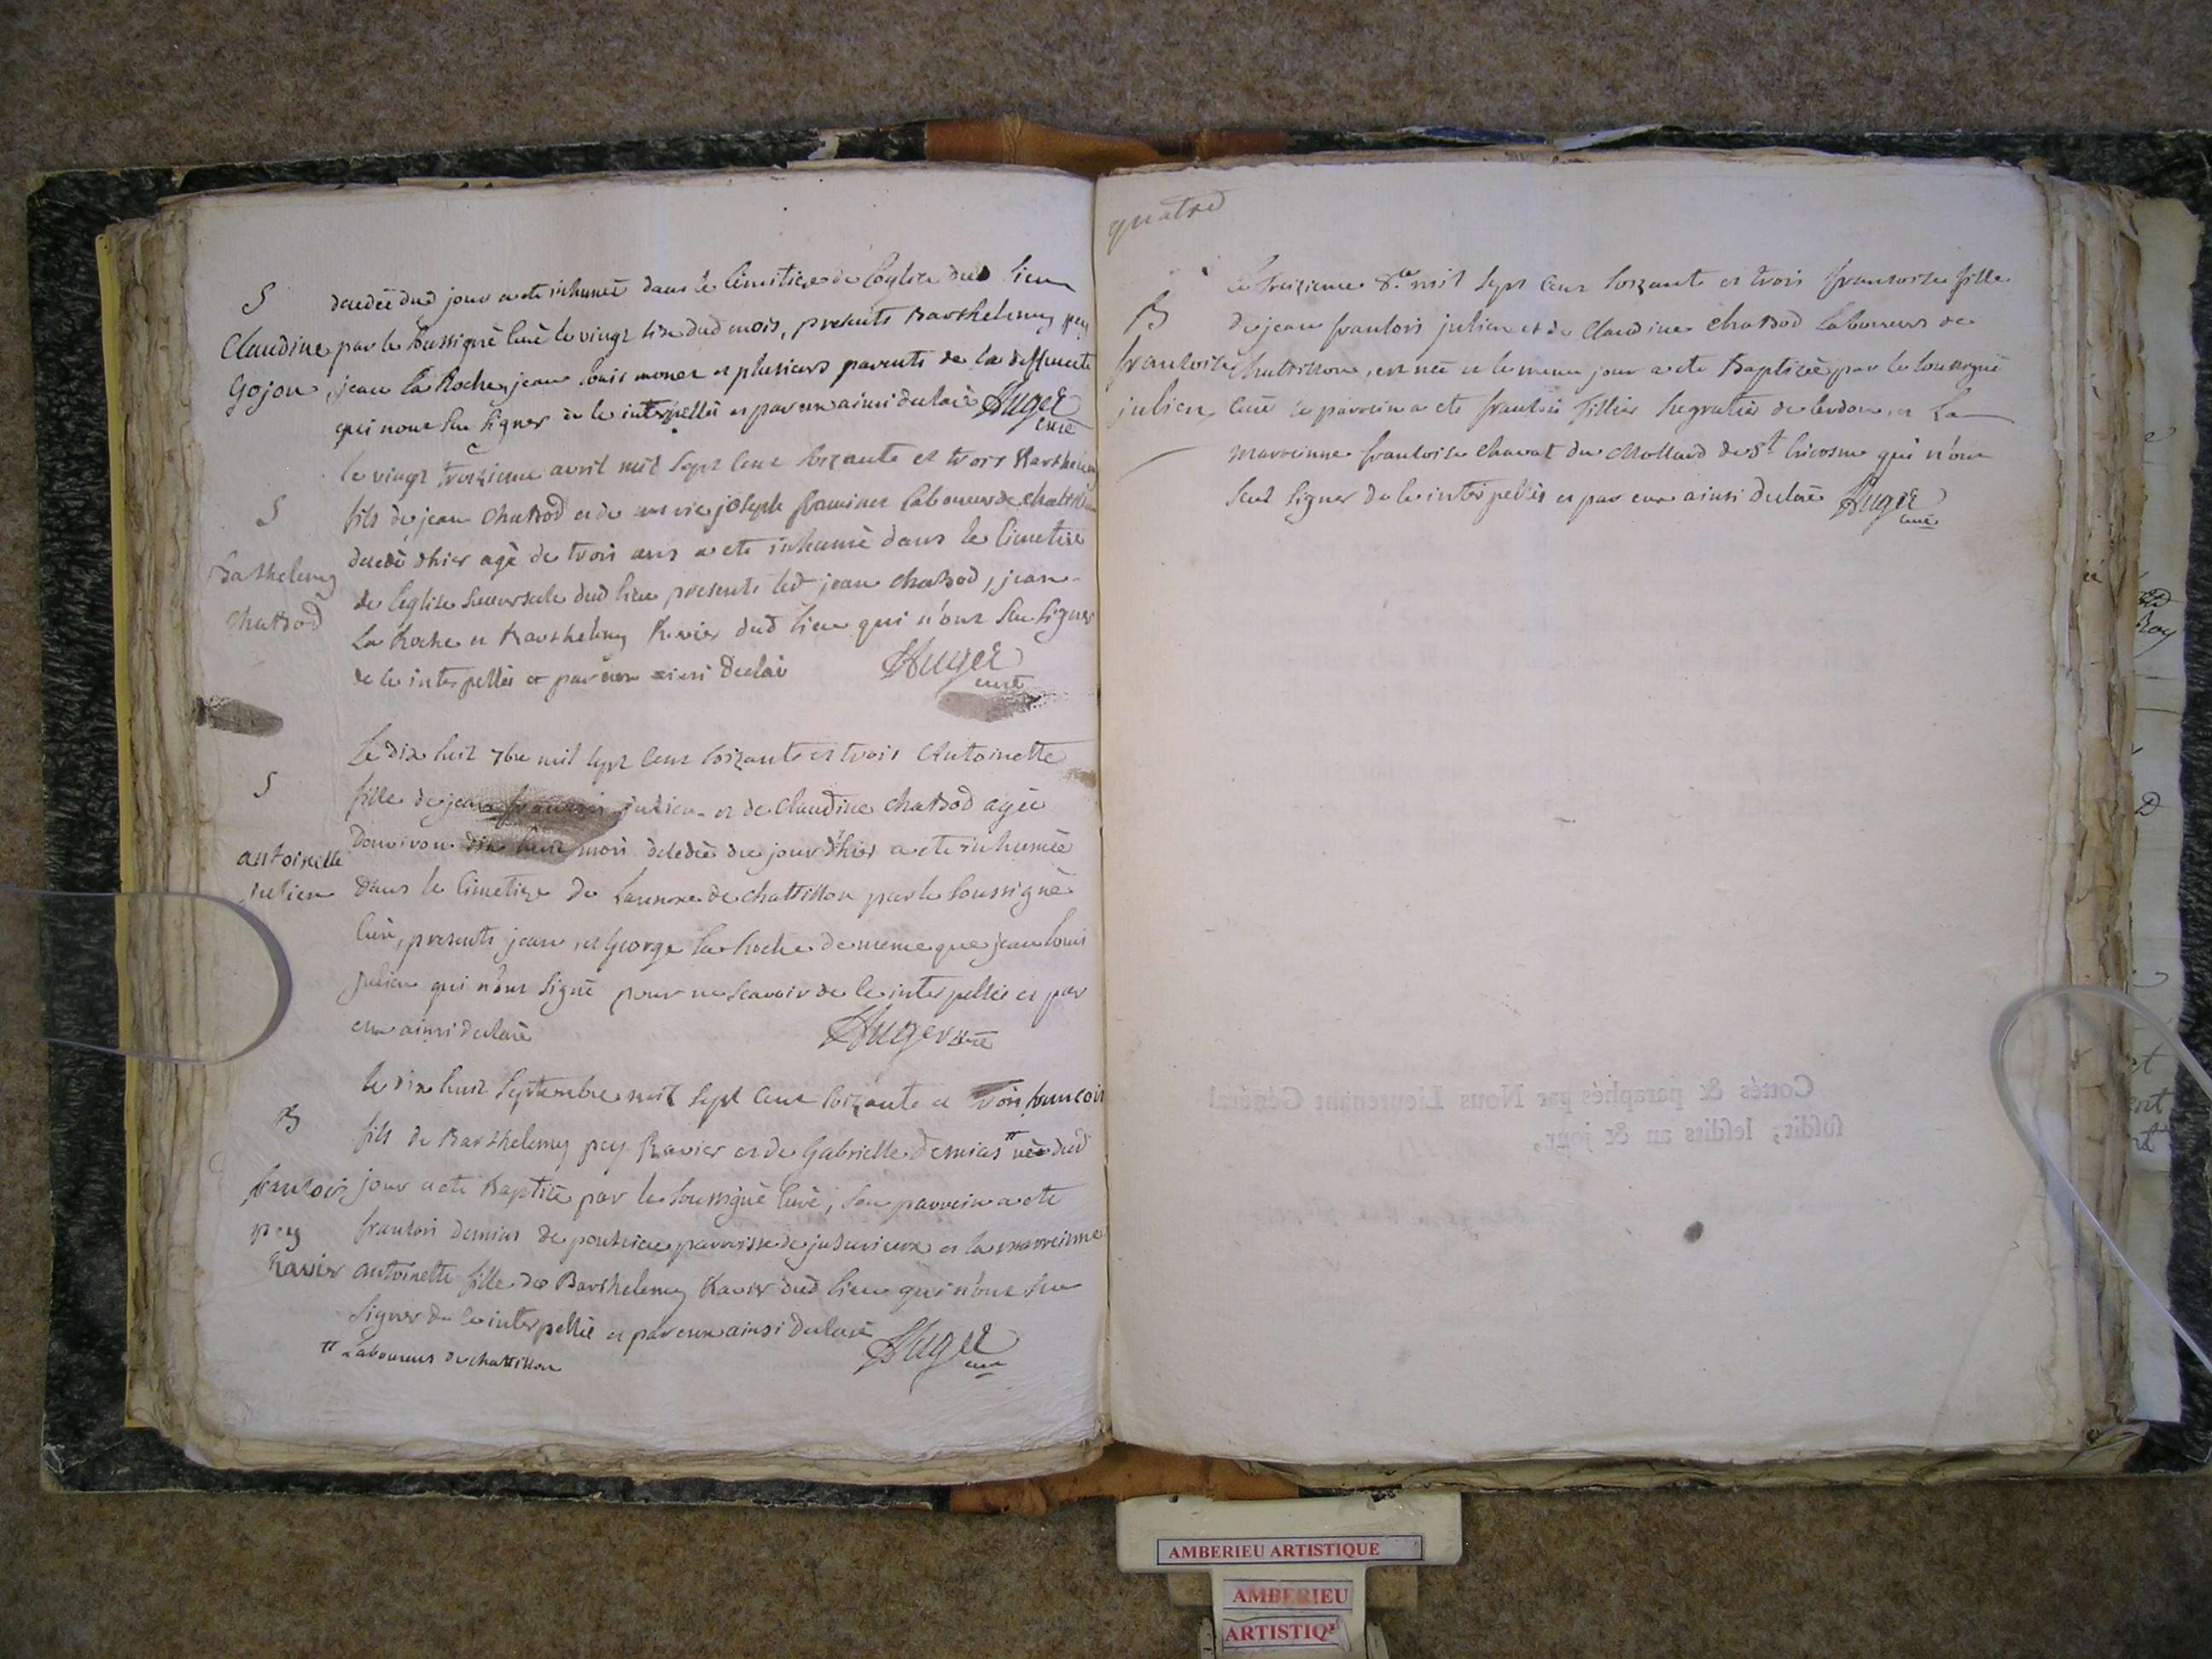 S
Claudine
Gojon
decedèe dud jour a ete inhumèe dans le Cimetiere de Leglise dud lieu
par le soussigné Curè le vingt six dud mois, presents Barthelemy pey
jean La Roche, jean louis monet et plusieurs parents de la deffuncte
qui n'ont sçu signer de le interpellés et par eux ainsi declaré Auger
curé
S
Barthelemy
Chatrod
le vingt troizieme avril mil sept cent soizante et trois Barthelemy
fils de jean Chatrod et de marie joseph laboureur de chatillon
decedè dhier agè de trois ans a ete inhumè dans le Cimetiere
de leglise succursale dud lieu presents led jean chatrod, jean
La Roche et Barthelemy Ravier dud lieu qui n'ont sçu signer
de le interpellés et par eux ainsi declaré Auger
curé
S
antoinette
julien
Le dix huit 7bre mil sept cent soizante et trois Antoinette
fille de jean francois julien et de Claudine chatrod agèe
Denviron dix huit mois decedèe du jour d'hier a ete inhumèe
dans le Cimetiere de Lannexe de chattillon par le soussignè
Curè, presents jean, et George La Roche de meme que jean louis
julien qui n'ont signè pour ne scavoir de le interpellés et par
eux ainsi declaré Auger curé
B
francois
pey
Ravier
le dix huit Septembre mil sept cent soizante et trois francois
fils de Barthelemy pey Ravier et de Gabrielle demias # nè dud
jour a ete Baptisè par le soussignè Curè, son parrein a ete
francois demias de parroisse de jusurieux et la marreinne
antoinette fille de Barthelemy Ravier dud lieu qui n'ont sçu
signer de le interpellés et par eux ainsi declaré Auger
curé
# Laboureurs de chattillon
quatre
B
francoise
julien
Le treizieme 8.bre mil sept cent soizante et trois francoise fille
de jean francois julien et de Claudine chatrod Laboureurs de
Chattillon, est nèe et le meme jour a ete Baptisèe par le soussignè
Curè le parrein a ete francois de et La
marreinne francoise chavat du Mollard de St. qui n'ont
sçut signer de le interpellés et par eux ainsi declaré Auger
curé
Cottés & paraphés par Nous Lieutenant Général
susdit; lesdits an & jour,
AMBERIEU ARTISTIQUE
AMBERIEU
ARTISTIQ